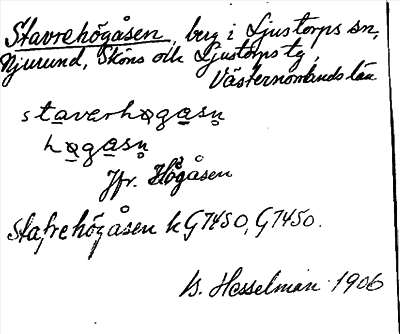 Stavrehögåsen, berg i Ljustorps sn,
Njurund, Sköns och Ljustorps tg,
Västernorrlands län
stavərhøgasn
høgasn
Jfr. Högåsen
Stafrehögåsen k G7450, G7450.
B. Hesselman 1906